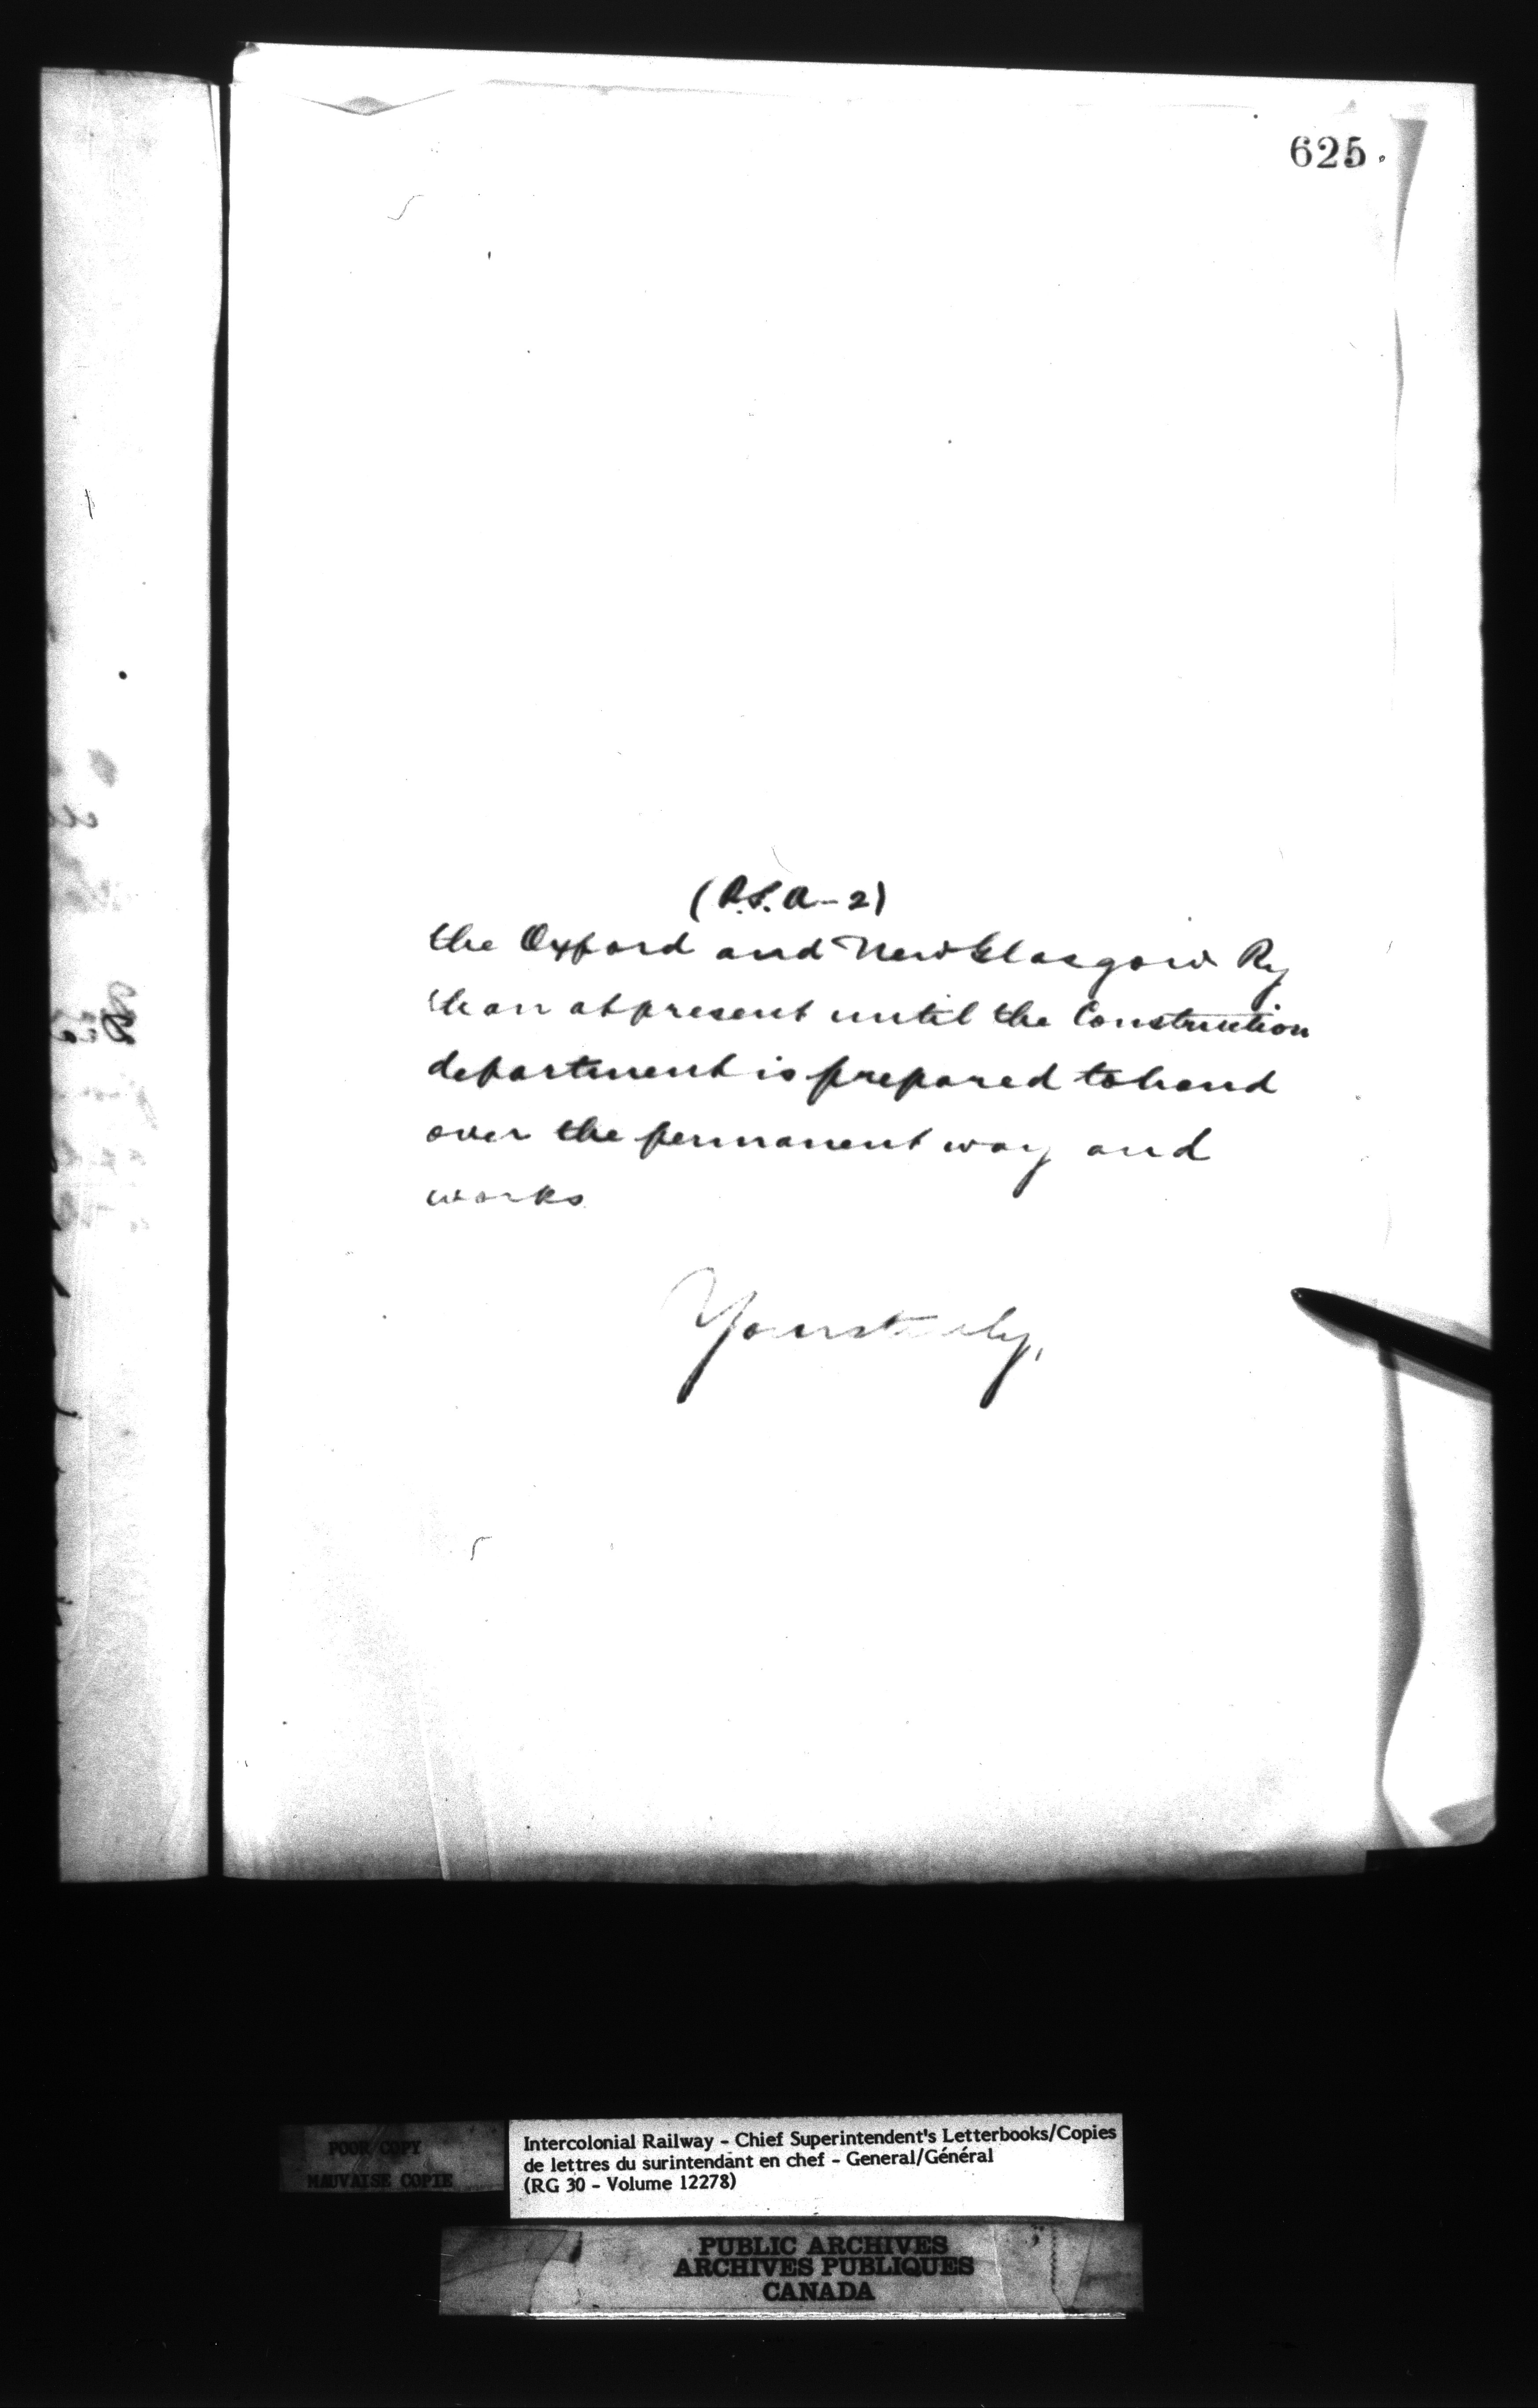 625.
(P.S.A-2)
the Oxford and New Glasgow Ry
than at present until the Construction
department is prepared to hand
over the permanent way and
works
Yours truly,
POOR COPY
MAUVAISE COPIE
Intercolonial Railway - Chief Superintendent's Letterbooks/Copies
de lettres du surintendant en chef - General/Général
(RG 30 - Volume 12278)
PUBLIC ARCHIVES
ARCHIVES PUBLIQUES
CANADA